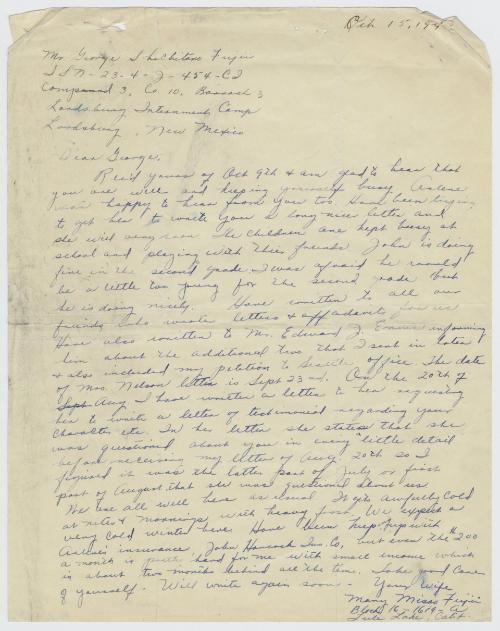 Oct 15, 194
Mr. George Fujii
ISN-23-4-J-454-CI
Compound 3, Co. 10, Barrack 3
Lordsburg Internment Camp
Lordsburg, New Mexico
Dear George,
Rec'd yours of Oct 9th & am glad to hear that
you are well and keeping yourself busy. Arlene
was happy to hear from you too. Have been trying
to get her to write you a long nice letter and
she will very soon. The children are kept busy at
school and playing with their friends. John is doing
fine in the second grade. I was afraid he would
be a little too young for the second grade but
he is doing nicely. Have written to all our
friends who wrote letters & affidavits for us
Have also written to Mr. Edward J. Ennis informing
him about the additional two that I sent in later
& also included my petition to Seattle office. The date
of Mrs. Nelson letter is Sept 23rd. On the 20th of
Sept Aug I have written a letter to her requesting
her to write a letter of testimonial regarding your
character etc. In her letter she states that she
was questioned about you in every "little detail
before receiving my letter of Aug. 20th so I
figured it was the latter part of July or first
part of August that she was questioned about us
We are all well here as usual. It gets awfully cold
at nites & mornings with heavy frost. We expect a
very cold winter here. Have been keeping up with
Arlene's insurance, John Hancock Ins. Co, but even the $2.00
a month is pretty hard for me with small income which
is about two months behind all the time. Take good care
of yourself. Will write again soon - Your Wife
Mary Misao Fujii
Block 16-1619-A
Tule Lake, Calif.